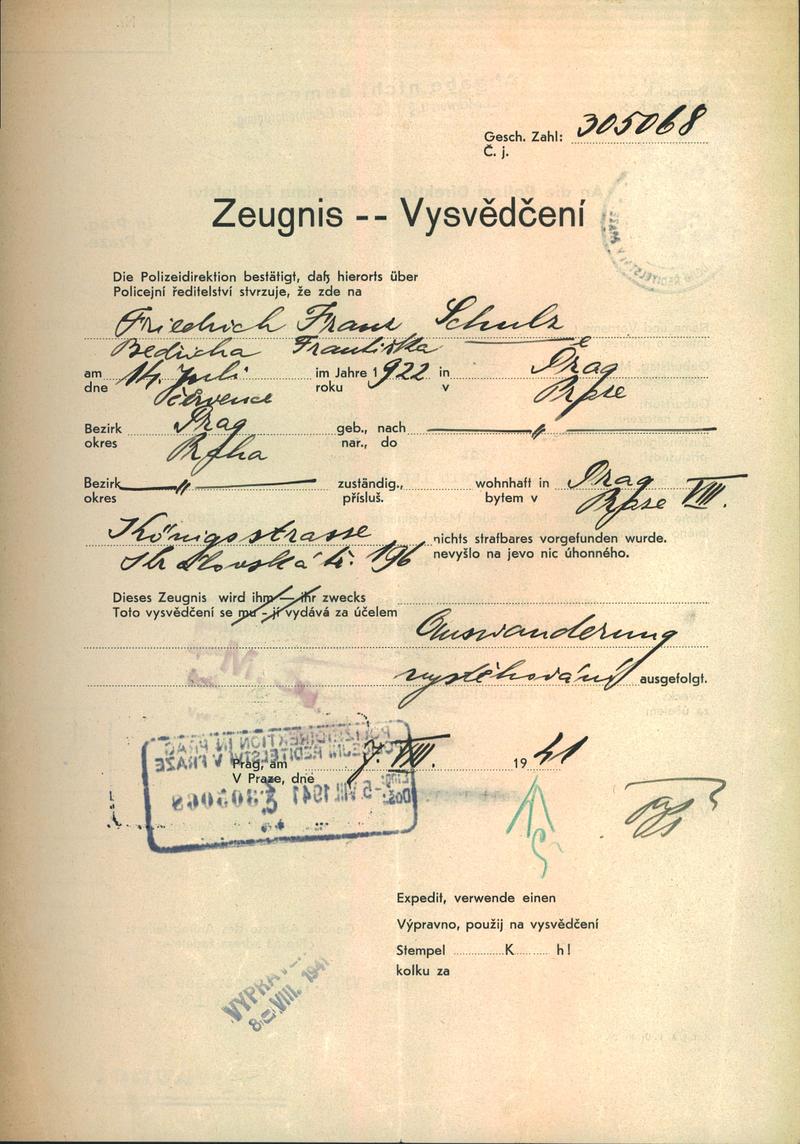 Gesch. Zahl: 305068
Č. j.
Zeugnis -- Vysvědčení
Die Polizeidirektion bestätigt, daß hierorts über
Policejní ředitelství stvrzuje, že zde na
Friedrich Franz Schulz
Bedřicha Františka
am 14. Juli im Jahre 1922 in Prag
dne července roku v Praze
Bezirk Prag geb., nach — " —
okres Praha nar., do
Bezirk — " — zuständig., wohnhaft in Prag
okres přísluš. bytem v Praze VIII.
Königsstrasse nichts strafbares vorgefunden wurde.
196 nevyšlo na jevo nic úhonného.
Dieses Zeugnis wird ihm — ihr zwecks
Toto vysvědčení se mu - jí vydává za účelem
Auswanderung
vystěhování ausgefolgt.
POLIZEIDIREKTION IN PRAG
POLICEJNÍ ŘEDITELSTVÍ V PRAZE
Eing.: Došl.: -5. VIII. 1941
305068
Prag, am 7. VIII. 1941
V Praze, dne
Expedit, verwende einen
Výpravno, použij na vysvědčení
Stempel K h!
kolku za
VYPRAVENO
8. VIII. 1941